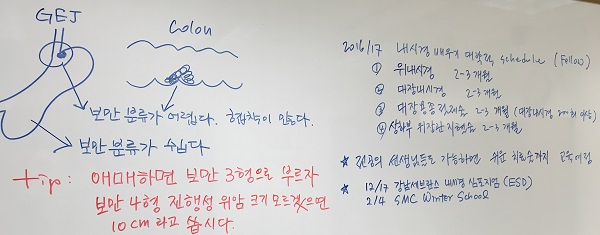 GEJ
Colon
보만 분류가 어렵다. 협착이 있는다.
보만 분류가 쉽다.
tip: 애매하면 보만 3형으로 부르자
보만 4형 진행성 위암 크기 모르겠으면
10cm 라고 씁시다.
2016/17 내시경 배우기 대략적 schedule (Fellow)
① 위내시경 2-3개월
② 대장내시경 2-3개월
③ 대장용종절제술 2-3개월 (대장내시경 200회 이상)
④ 상부 위장관 지혈술 2-3개월
★ 선생님들도 가능하면 위한 치료술까지 교육예정
★ 12/17 강남세브란스 내시경 심포지엄 (ESD)
2/4 SMC Winter School